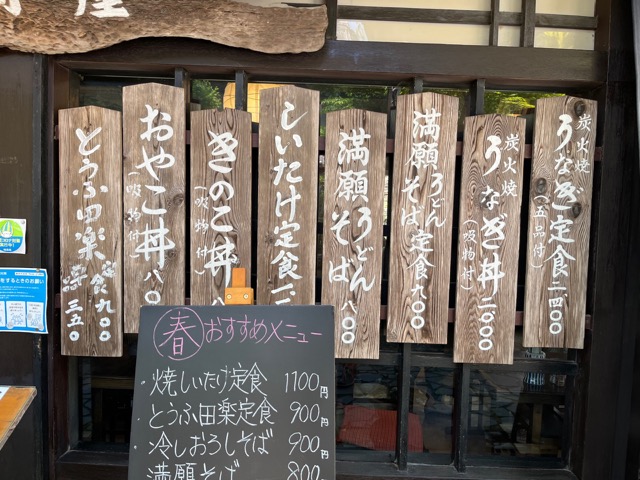 炭火焼
うなぎ定食 二四〇〇
(五品付)
炭火焼
うなぎ丼 二〇〇〇
(吸物付)
満願うどん
そば定食 九〇〇
満願うどん
そば 八〇〇
しいたけ定食 一
きのこ丼
(吸物付)
おやこ丼 八〇
(吸物付)
とうふ田楽 定食 九〇〇
三五〇
春おすすめメニュー
・焼しいたけ定食 1100円
・とうふ田楽定食 900円
・冷しおろしそば 900円
満願そば 800